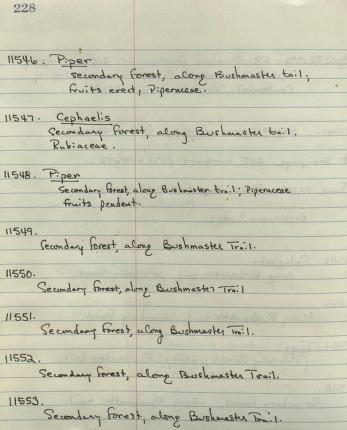 228
11546. Piper
secondary forest, along Bushmaster tail;
fruits erect, Piperaceae.
11547. Cephaelis
Secondary forest, along Bushmaster trail.
Rubiaceae.
11548. Piper
Secondary forest, along Bushmaster trail; Piperaceae
fruits pendent.
11549.
Secondary forest, along Bushmaster Trail.
11550.
Secondary forest, along Bushmaster Trail
11551.
Secondary forest, along Bushmaster Trail.
11552.
Secondary forest, along Bushmaster Trail.
11553.
Secondary forest, along Bushmaster Trail.